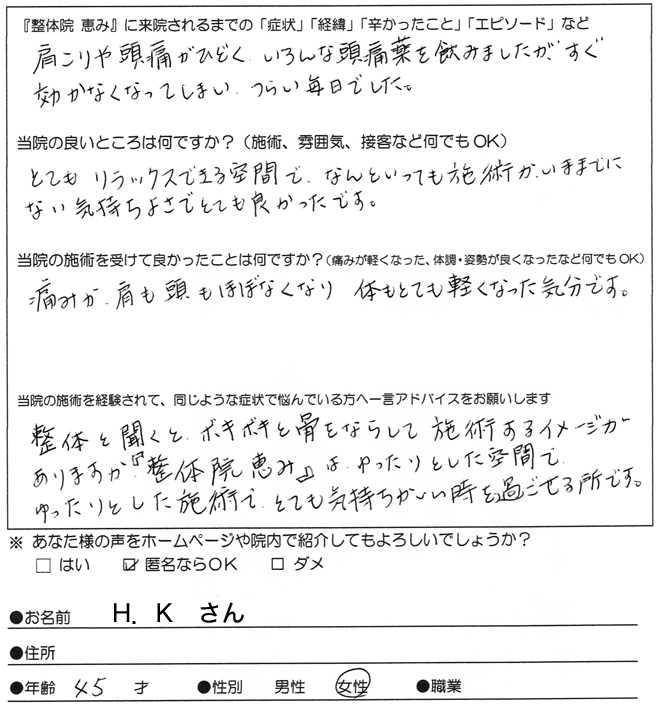 『整体院 恵み』に来院されるまでの「症状」「経緯」「辛かったこと」「エピソード」など
肩こりや頭痛がひどく、いろんな頭痛薬を飲みましたが、すぐ
効かなくなってしまい、つらい毎日でした。
当院の良いところは何ですか？（施術、雰囲気、接客など何でもOK）
とても リラックスできる空間で、なんといっても施術が、いままでに
ない気持ちよさでとても良かったです。
当院の施術を受けて良かったことは何ですか？（痛みが軽くなった、体調・姿勢が良くなったなど何でもOK）
痛みが、肩も頭もほぼなくなり 体もとても軽くなった気分です。
当院の施術を経験されて、同じような症状で悩んでいる方へ一言アドバイスをお願いします
整体と聞くと、ボキボキと骨をならして施術するイメージが
ありますが、『整体院恵み』は、ゆったりとした空間で、
ゆったりとした施術で、とても気持ちがいい時を過ごせる所です。
※ あなた様の声をホームページや院内で紹介してもよろしいでしょうか？
□ はい ☑ 匿名ならOK □ ダメ
●お名前 H. K さん
●住所
●年齢 45 才 ●性別 男性 女性 ●職業